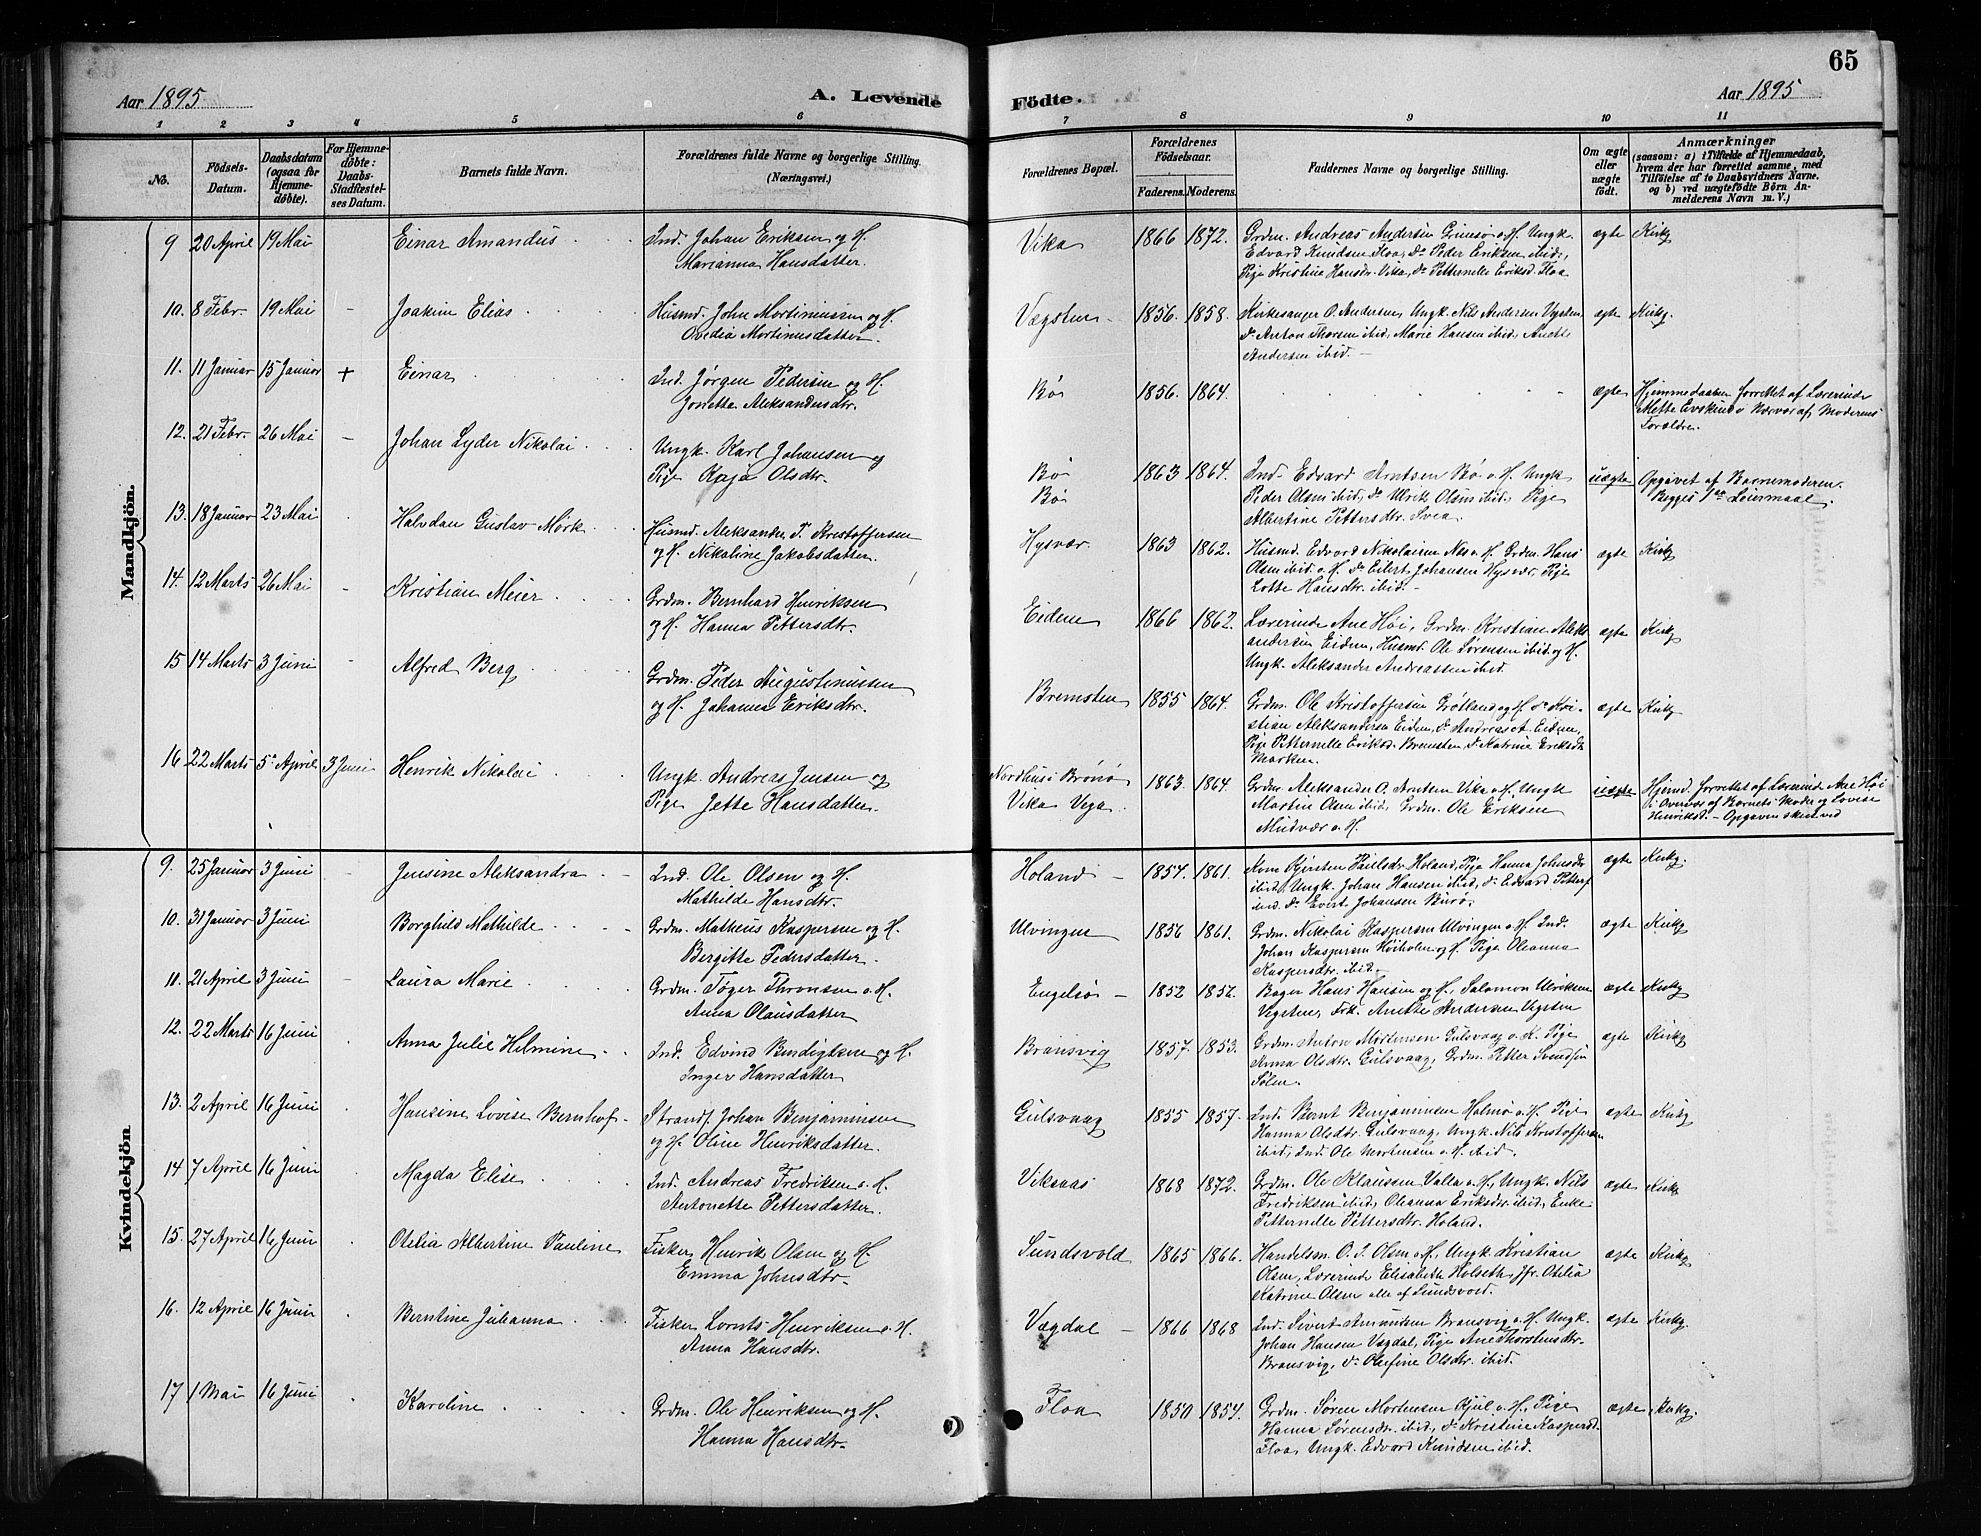 65
Aar 1895
A. Levende
Fødte.
Aar 1895
1 2 3 4 5 6 7 8 9 10 11
No.
Fødsels-
Datum.
Daabsdatum
(ogsaa for
Hjemme-
døbte).
For Hjemme-
døbte:
Daabs-
Stadfæstel-
ses Datum.
Barnets fulde Navn.
Forældrenes fulde Navne og borgerlige Stilling.
(Næringsvei.)
Forældrenes Bopæl.
Forældrenes
Fødselsaar.
Faderens. Moderens.
Faddernes Navne og borgerlige Stilling.
Om ægte
eller
uægte
født.
Anmærkninger
(saasom: a) i Tilfælde af Hjemmedaab,
hvem der har forrettet samme, med
Tilføielse af to Daabsvidners Navne.
og b) ved uægtefødte Børn An-
melderens Navn m. V.)
Mandkjøn.
9 20 April 19 Mai Einar Amandus Ind. Johan Eriksen og H.
Marianna Hansdatter.
Vika 1866 1872. Grdm. Andreas Andersen Grimsø o. H. Ungk.
Edvard Knudsen Floa, do Peder Eriksen ibid.,
Pige Kristine Hansdr. Vika, do Petternelle Eriksd. Floa
ægte Kirkg
10. 8 Febr. 19 Mai - Joakim Elias Husmd. John Mortinussen og H.
Ovedia Mortinusdatter.
Vægsten 1856. 1858. Kirkesanger O. Andersen, Ungk. Nils Andersen Vegsten
do Anton Thorsen ibid, Marie Hansen ibid, Anette
Andersen ibid. -
ægte Kirkg.
11. 11 Januar 15 Januar + Einar Ind. Jørgen Pedersen og H.
Jonetta Aleksandersdtr.
Bø 1856. 1864. ægte Hjemmedaaben forrettet af Lærerinde
12. 21 Febr. 26 Mai - Johan Lyder Nikolai Ungk. Karl Johansen og
Pige Kaja Olsdtr.
Bø
Bø
1863 1864. Ind. Edvard Arntsen Bø o. H. Ungk
Peder Olsen ibid, do Ulrik Olsen ibid. Pige
Albertine Pettersdtr. Svea.
uægte Opgivet af Barnemoderen.
Begges 1ste Leiermaal.
13. 18 Januar 23 Mai Halvdan Gustav Mørk Husmd. Aleksander P. Kristoffersen
og H. Nikoline Jakobsdatter.
Hysvær. 1863 1862. Husmd. Edvard Nikolaisen Nes o. H. Grdm. Hans
Olsen ibid o. H. do Eilert Johansen Hysvær, Pige
Lotte Hansdtr. ibid. -
ægte Kirkg
14. 12 Marts 26 Mai - Kristian Meier Grdm. Bernhard Henriksen
og H. Hanna Pettersdtr.
Eidem 1866 1862. Lærerinde Ane Høi, Grdm. Kristian Aleks
andersen Eidem, Husmd. Ole Sørensen ibid og H.
Ungk. Aleksander Andreassen ibid
ægte Kirkg
15 14 Marts 3 Juni - Alfred Berg Grdm. Peder Augustinussen
og H. Johanna Eriksdtr.
Bremsten 1855 1864. Grdm. Ole Kristoffersen Grøtland og H. do Kri-
stian Aleksandersen Eidem, do Andreas A. Eidem,
Pige Petternelle Eriksd. Bremsten, do Katrine Eriksdtr
Marken.
ægte Kirkg
16 22 Marts 5 April 3 Juni Henrik Nikolai Ungk. Andreas Jensen og
Pige Jette Hansdatter.
Nordhus i Brønø
Vika Vega
1863. 1864. Grdm. Aleksander O. Arntsen Vika o. H, Ungk
Martin Olsen ibid, Grdm. Ole Eriksen
Mudvær o. H.
uægte Hjemd. forrettet af Lærerind. Ane Høi
i Overvær af Barnets Moder og Lovise
Henriksd. - Opgaven skent ved
Kvindekjøn
9. 25 Januar 3 Juni Jensine Aleksandra Ind. Ole Olsen og H.
Mathilde Hansdtr.
Holand 1854. 1861. Kone Kjersten Paulsdtr. Holand, Pige Hanna Johnsdtr
ibid, Ungk. Johan Hansen ibid, do Edvard Petters
ibid. do Evert Johansen Burø.
ægte Kirkg.
10. 31 Januar 3 Juni Borghild Mathilde Grdm. Matheus Kaspersen og H.
Bergitte Pedersdatter.
Ulvingen 1856 1861. Grdm. Nikolai Kaspersen Ulvingen o. H. Ind.
Johan Kaspersen Høiholm og H. Pige Oleanna
Kaspersdtr. ibid.
ægte Kirkg
11. 21 April 3 Juni Laura Marie Grdm. Tøger Thronsen o. H.
Anna Olausdatter
Engelsø 1852 1856. Bager Hans Hansen og H., Salomon Ulriksen
Vegsten, Frk. Anette Andersen Vegsten
ægte Kirkg
12. 22 Marts 16 Juni Anna Julie Helmine Ind. Edvind Bendigtsen og H.
Inger Hansdatter
Bransvig 1857. 1853. Grdm. Anton Mortensen Gulsvaag o. H. Pige
Anna Olsdtr. Gulsvaag, Grdm. Petter Svendsen
Sølen.
ægte Kirkg
13. 2 April 16 Juni Hansine Lovise Bernhof Strands. Johan Benjaminsen
og H. Oline Henriksdatter.
Gulsvaag 1855 1857. Ind. Bernt Benjaminsen Holmø o. H. Pige
Hanna Olsdtr. Gulsvaag, Ungk. Nils Kristoffersen
ibid, Ind. Ole Mortensen o. H. ibid.
ægte Kirkg
14 7 April 16 Juni Magda Elise Ind. Andreas Fredriksen o. H.
Antonette Pettersdatter.
Viksaas 1868 1872. Grdm. Ole Klausen Valla o. H., Ungk. Nils
Fredriksen ibid, Oleanna Eriksdtr. ibid, Enke
Petternelle Pettersdtr. Holand.
ægte Kirkg
15. 27 April 16 Juni Otelia Albertine Pauline Fisker Henrik Olsen og H
Emma Johnsdtr.
Sundsvold 1865 1866. Handelsm. O. J. Olsen o. H., Ungk. Kristian
Olsen, Lærerinde Elisabeth Holseth, Jfr. Otelia
Katrine Olsen alle af Sundsvold.
ægte Kirkg
16. 12 April 16 Juni Berntine Julianna Fisker Lornts Henriksen o. H.
Anna Hansdtr.
Vægdal 1866 1868 Ind. Sivert Amundsen Bransvig o. H. Ungk.
Johan Hansen Vægdal, Pige Ane Thorstensdtr.
Bransvig, do Olefine Olsdtr. ibid.
ægte Kirkg.
17 1 Mai 16 Juni Karoline Grdm. Ole Henriksen og H.
Hanna Hansdtr.
Floa 1850 1854. Grdm. Søren Mortensen Kjul o. H., Pige
Hanna Sørensdtr. ibid, do Kristine Kaspersd.
Floa, Ungk. Edvard Knudsen ibid.
ægte Kirkg.